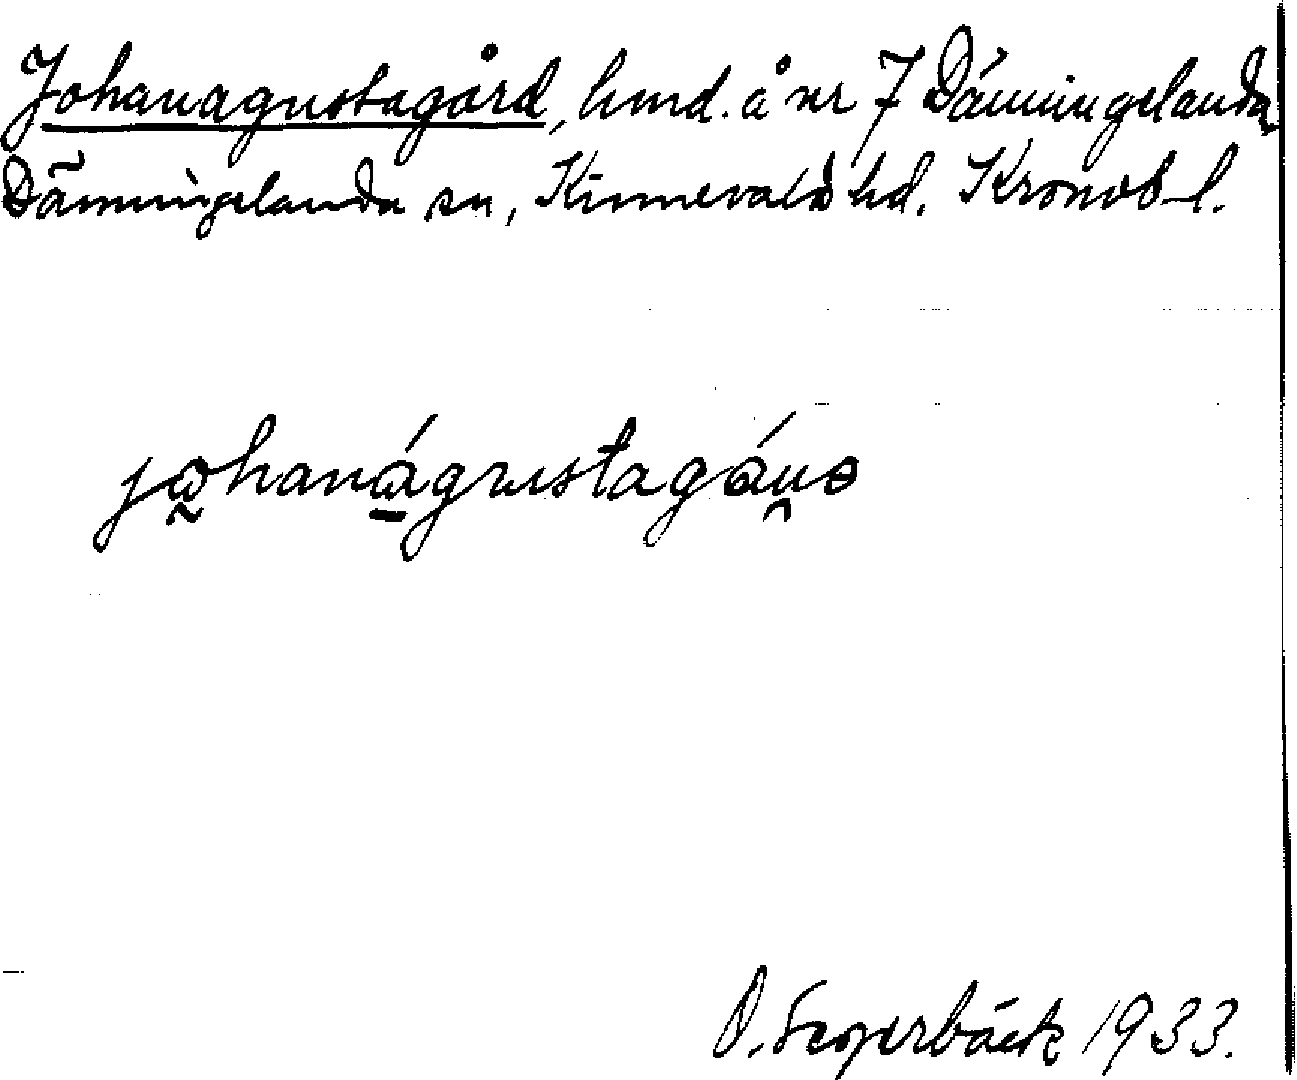 Johanagustagård, hmd. å nr 7 Dänningelanda
Dänningelanda sn, Kinnevalds hd. Kronob. l.
johanágustagáɳə
O. Segerbäck 1933.